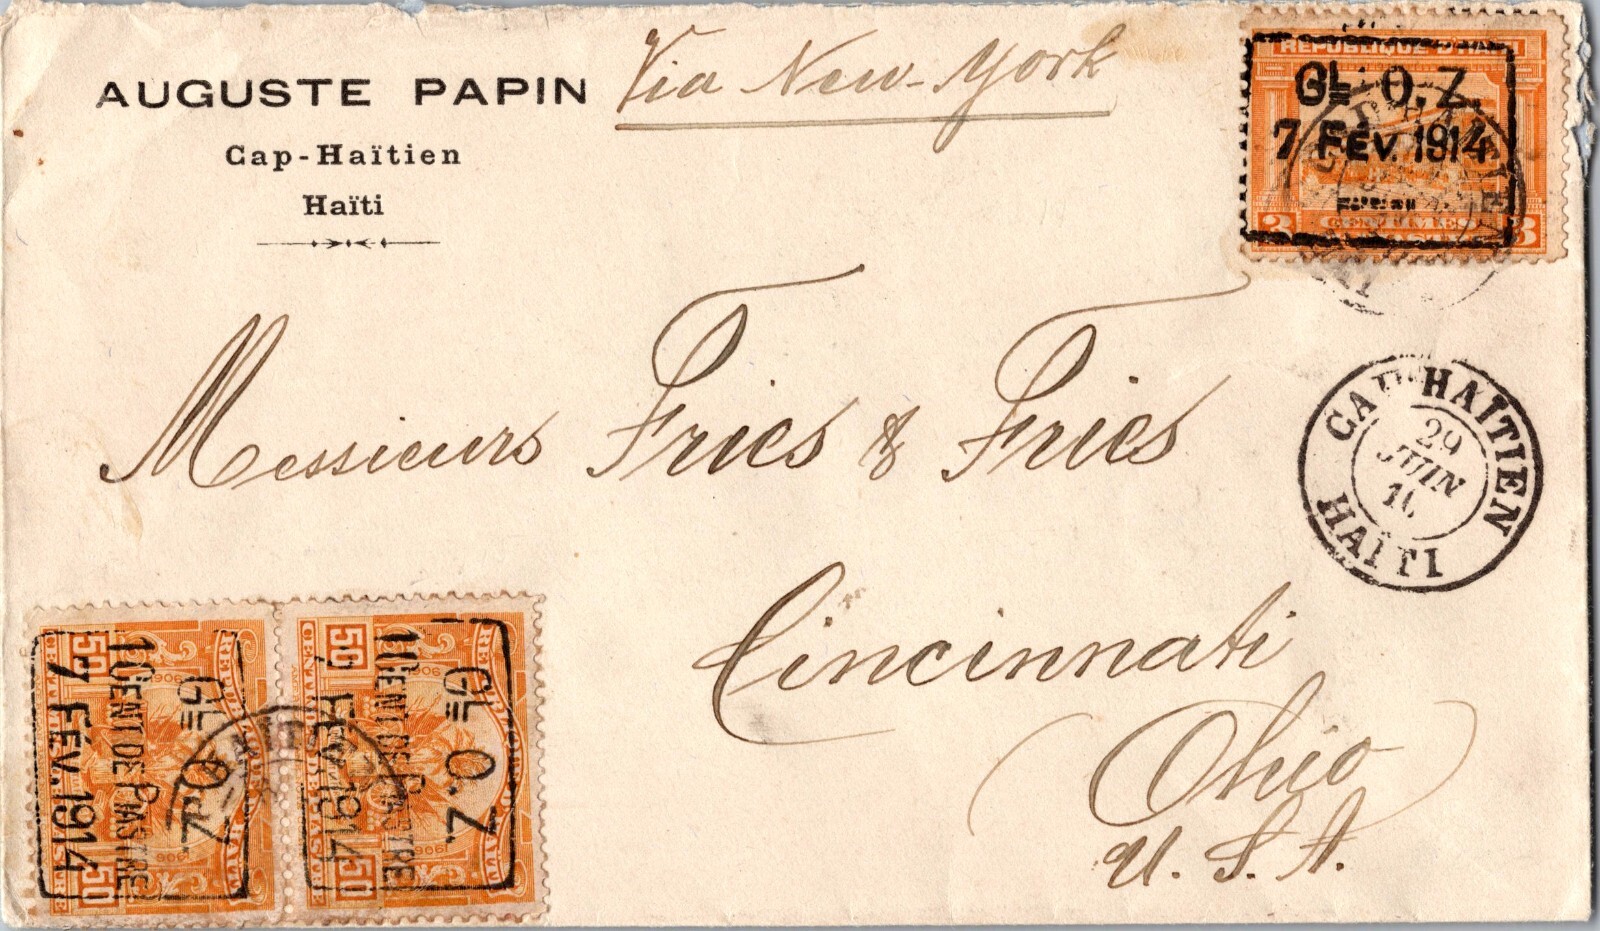 AUGUSTE PAPIN
Cap-Haïtien
Haïti
Via New-York
REPUBLIQUE D'HAITI
GL O.Z.
7 FÉV. 1914
3 CENTIMES 3
Messieurs Fries & Fries
Cincinnati
Ohio
U.S.A.
CAP HAÏTIEN
29
JUIN
HAÏTI
50
GL O.Z.
1 CENT DE PIASTRE
7 FÉV. 1914
50
50
GL O.Z.
1 CENT DE PIASTRE
7 FÉV. 1914
50